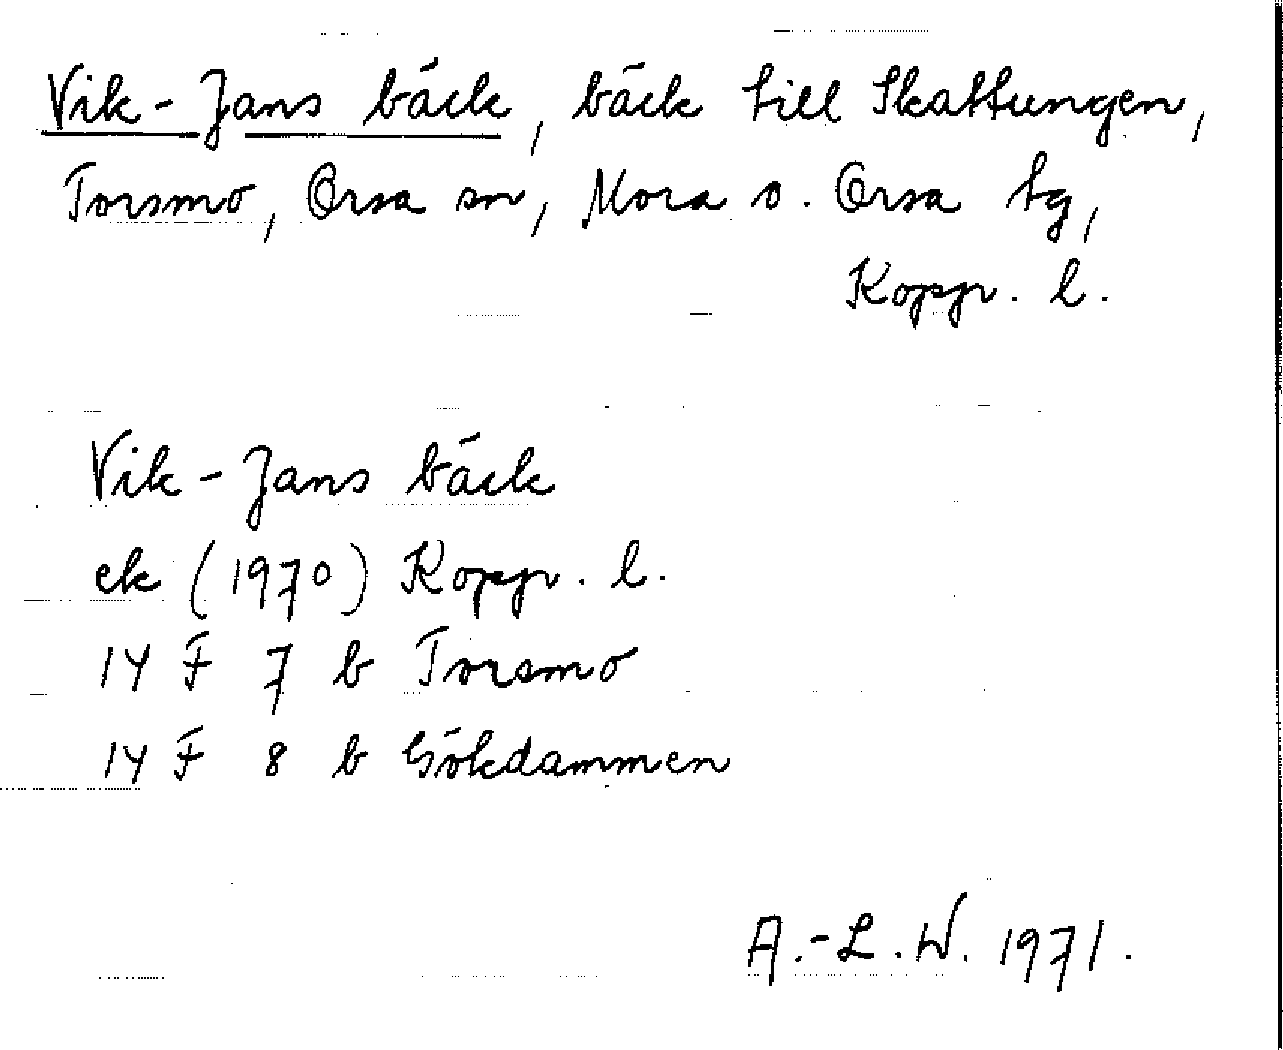 Vik-Jans bäck, bäck till Skattungen,
Torsmo, Orsa sn, Mora o. Orsa tg,
Koppr. l.
Vik-Jans bäck
ek (1970) Koppr. l.
14 F 7 b Torsmo
14 F 8 b Gökdammen
A.-L.W. 1971.